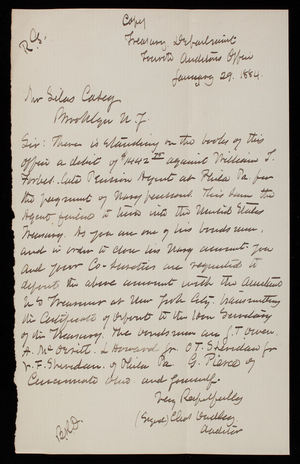 Copy
Treasury Department
Fourth Auditors Office
January 29. 1884.
Mr Silas Casey
Brooklyn N.Y.
Sir: There is standing on the books of this
Office a debit of $1442 against William S.
Forbes. late Pension Agent at Phila Pa for
the payment of Navy pensions. This sum the
Agent failed to turn into the United States
Treasury. As you are one of his bondsmen,
and in order to close his Navy account. you
and your Co-Sureties are requested to
deposit the above amount with the Assistant
U S Treasurer at New York City, transmitting
the Certificate of deposit to the Hon Secretary
of the Treasury. The bondsmen are J. T. Owen,
A. L Howard Jr. O T. Sheridan Jr
F. Sheridan, of Phila Pa G. Pierce of
Cincinnati Ohio and yourself.
Very Respectfully
(Signed) Chas
Auditor